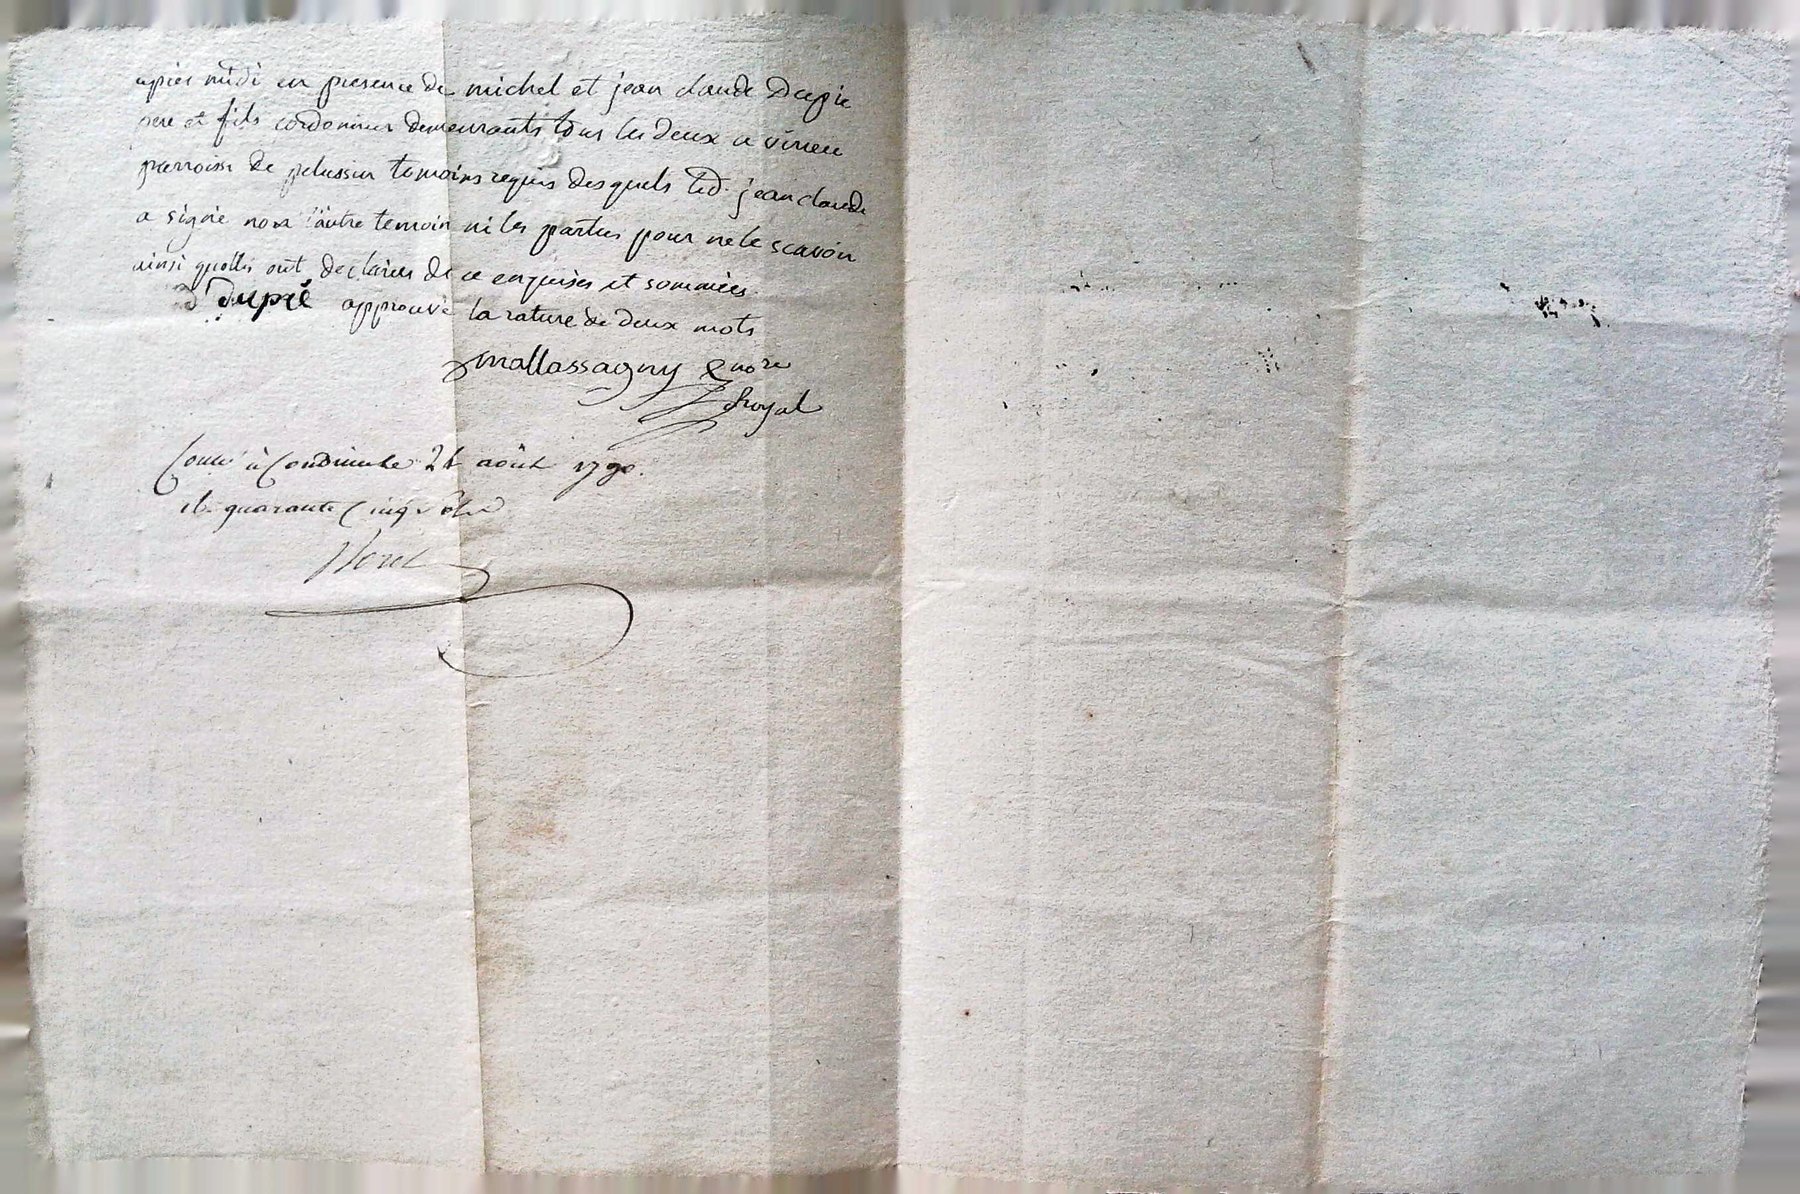 apres midi en presence de michel et jean claude Dupié
pere et fils cordonniers demeurants tous les deux a virieu
parroisse de pelussin temoins requis desquels led. jean claude
a signé non l'autre temoin ni les parties pour ne le scavoir
ainsi quelles ont declarées de ce enquises et sommées
Dupié approuvé la rature de deux mots
mallassagny nore
Royal
Conlé à Condrieu le 24 août 1790.
R quarante Cinq sols